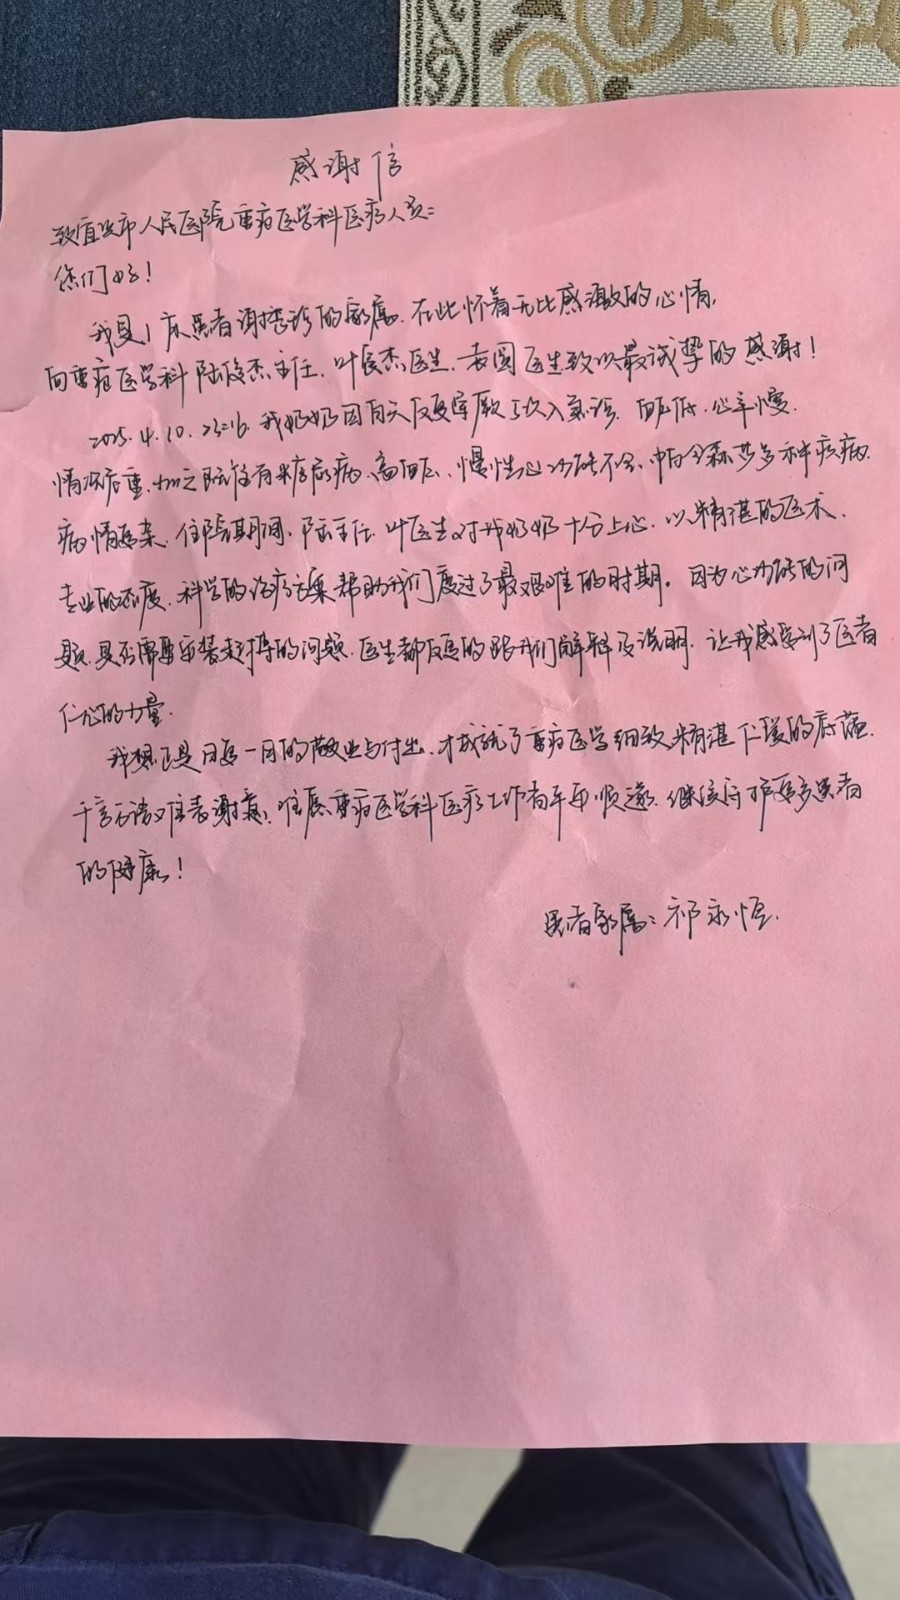 感谢信
致宜兴市人民医院重症医学科医疗人员：
您们好！
我是1床患者谢李珍的家属，在此怀着无比感激的心情，
向重症医学科陆俊杰主任、叶俊杰医生、袁圆医生致以最诚挚的感谢！
2025.4.10.23:16，我奶奶因白天反复晕厥5次入急诊，血压低，心率慢，
情况危重，加之既往有糖尿病、高血压、慢性心功能不全、帕金森等多种疾病，
病情复杂，住院期间，陆主任、叶医生对我奶奶十分上心，以精湛的医术、
专业的态度、科学的治疗方案帮助我们度过了最艰难的时期。因为心功能的问
题，是否需要安装起搏的问题，医生都反复的跟我们解释及说明，让我感受到了医者
仁心的力量。
我想正是日复一日的敬业与付出，才成就了重症医学细致精湛仁爱的底蕴，
千言万语难表谢意，唯愿重症医学科医疗工作者平安顺遂，继续守护更多患者
的健康！
患者家属：祁永恒